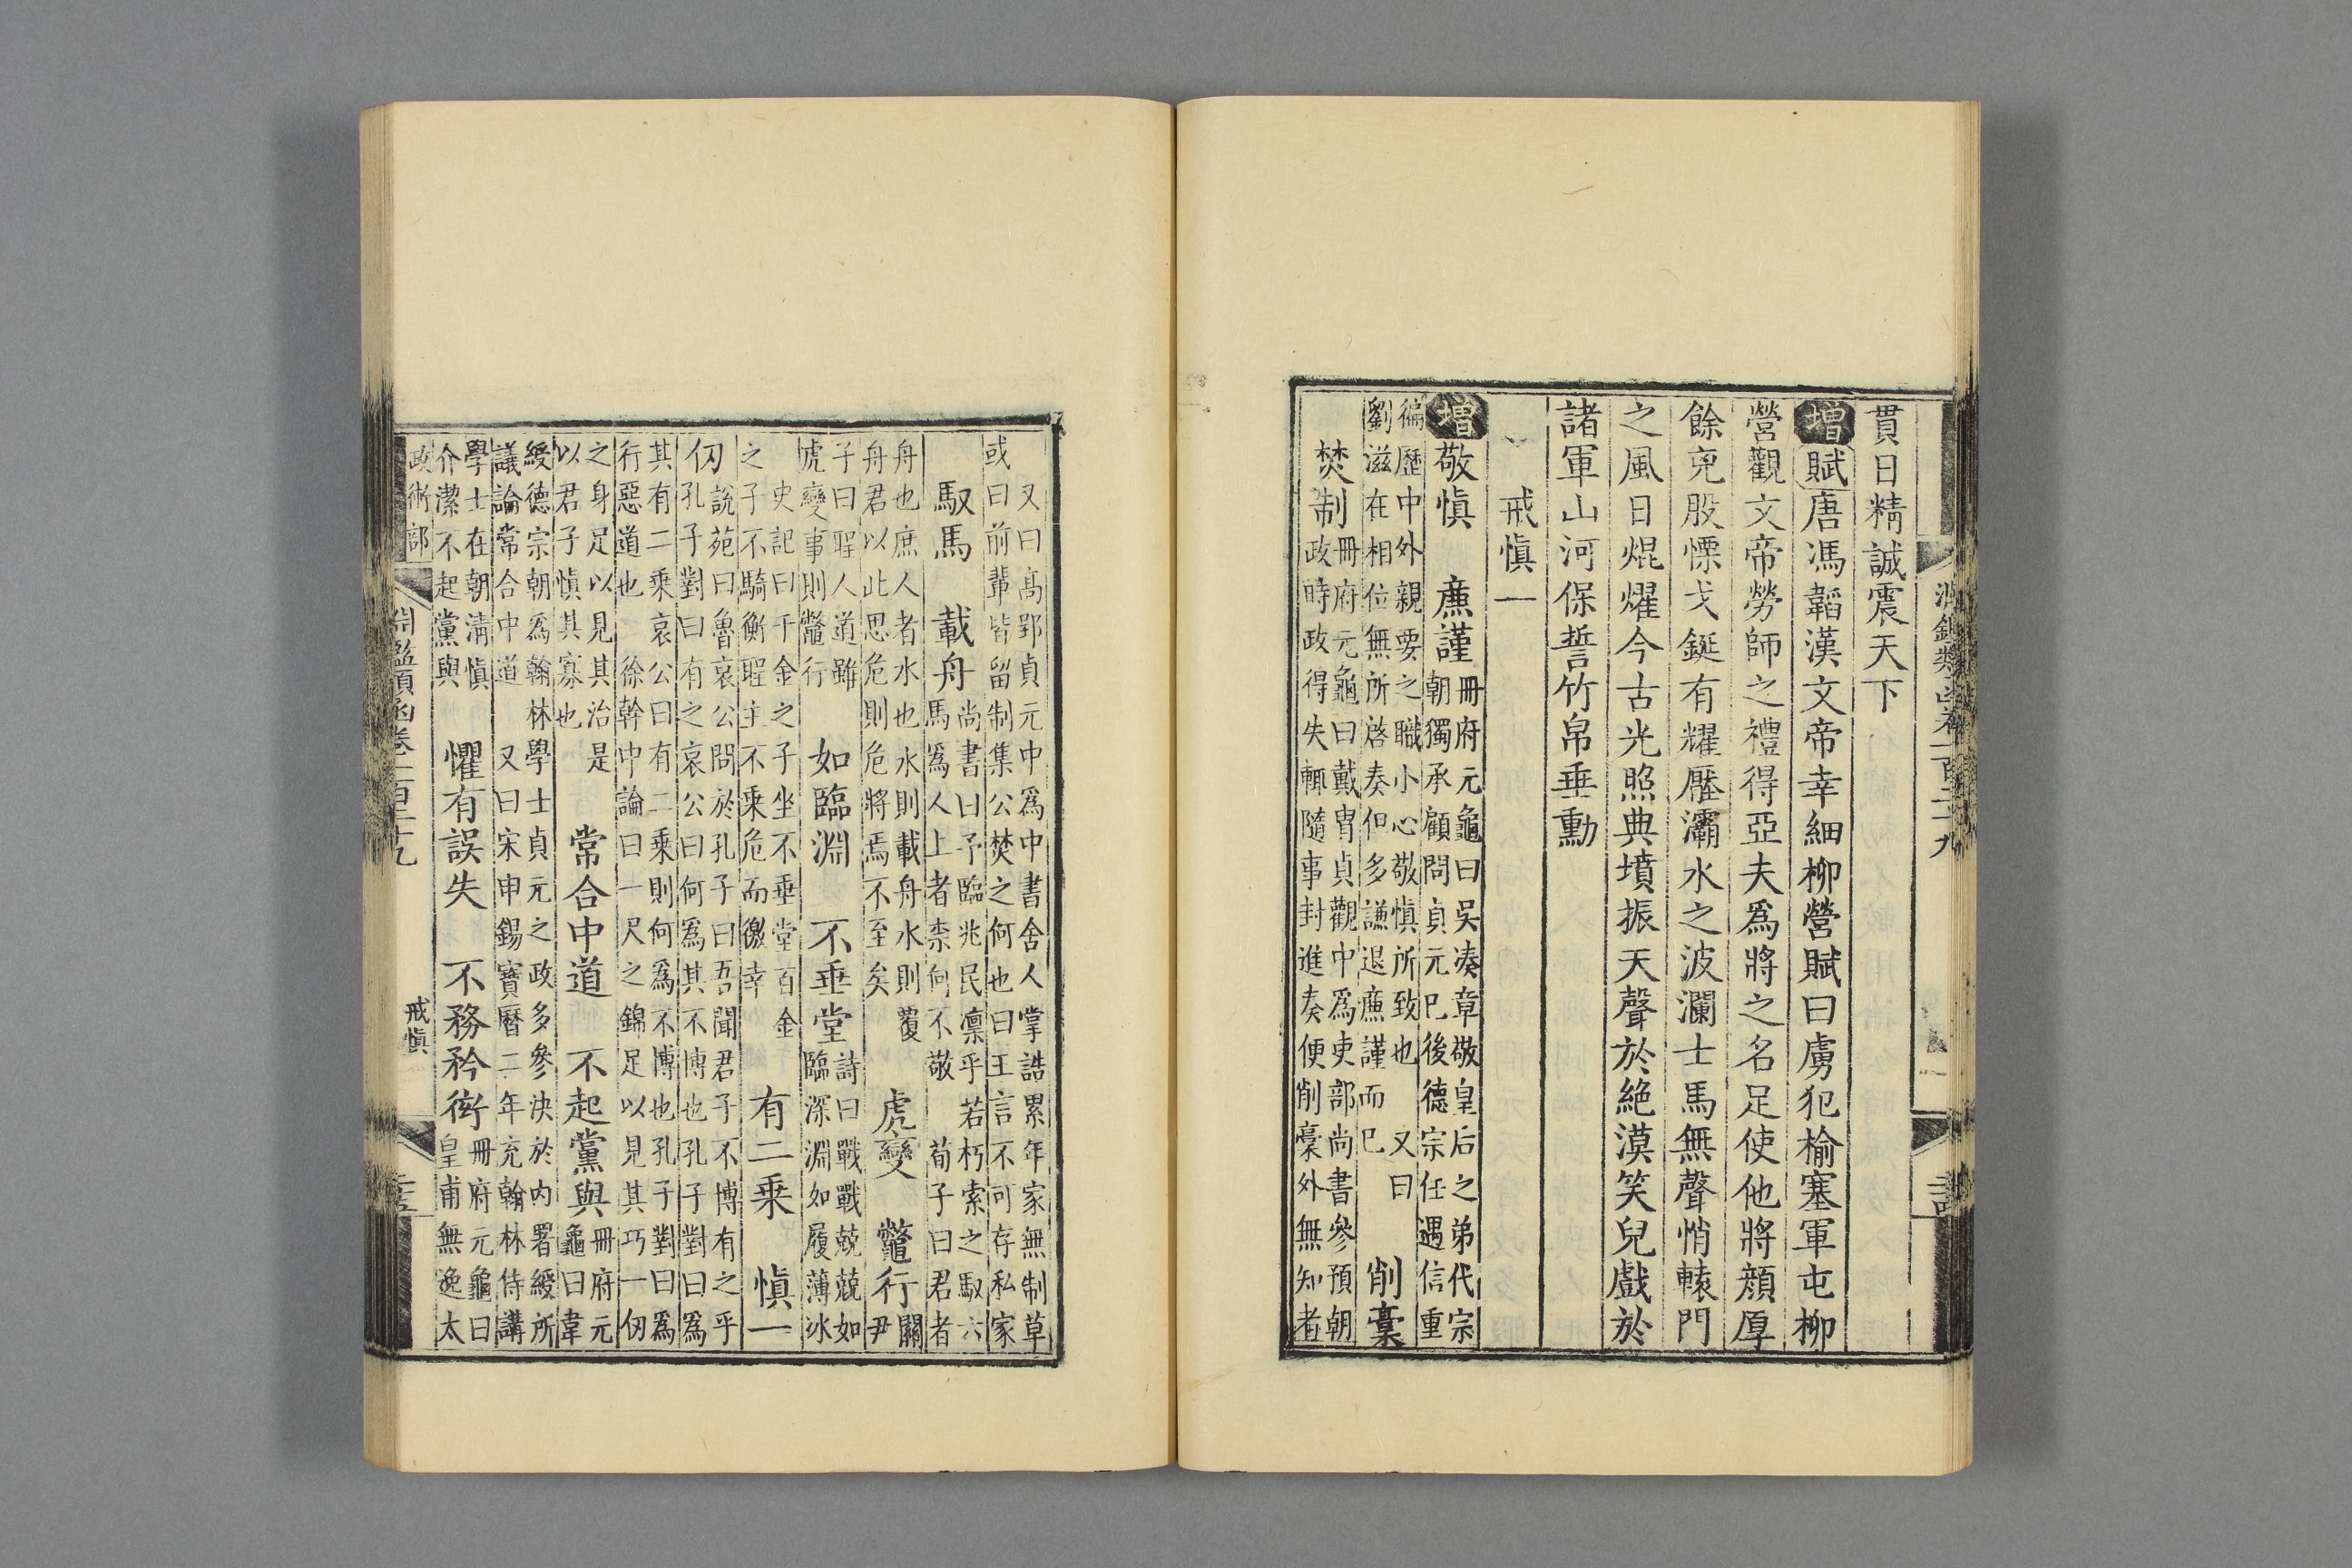 貫日精誠震天下
增賦唐馮韜漢文帝幸細柳營賦曰虜犯榆塞軍屯柳
營觀文帝勞師之禮得亞夫爲將之名足使他將顏厚
餘兇股慄戈鋋有耀壓灞水之波瀾士馬無聲悄轅門
之風日焜燿今古光照典墳振天聲於絶漠笑兒戲於
諸軍山河保誓竹帛垂勳
戒慎一
增敬慎 廉謹
冊府元龜曰吳凑章敬皇后之弟代宗
朝獨承顧問貞元巳後德宗任遇信重
徧歷中外親要之職小心敬慎所致也 又曰
劉滋在相位無所啓奏但多謙退廉謹而巳
削藁
焚制
冊府元龜曰戴冑貞觀中爲吏部尚書參預朝
政時政得失輒隨事封進奏便削藁外無知者
又曰高郢貞元中爲中書舍人掌誥累年家無制草
或曰前輩皆留制集公焚之何也曰王言不可存私家
馭馬 載舟
尚書曰予臨兆民凛乎若朽索之馭六
馬爲人上者柰何不敬 荀子曰君者
舟也庶人者水也水則載舟水則覆
舟君以此思危則危將焉不至矣
虎變 鼈行
關
尹
子曰聖人道雖
虎變事則鼈行
如臨淵 不垂堂
詩曰戰戰兢兢如
臨深淵如履薄冰
史記曰千金之子坐不垂堂百金
之子不騎衡聖主不乘危而徼幸
有二乘 慎一
仞
說苑曰魯哀公問於孔子曰吾聞君子不博有之乎
孔子對曰有之哀公曰何爲其不博也孔子對曰爲
其有二乘哀公曰有二乘則何爲不博也孔子對曰爲
行惡道也 徐幹中論曰一尺之錦足以見其巧一仞
之身足以見其治是
以君子慎其寡也
常合中道 不起黨與
冊府元
龜曰韋
綬德宗朝爲翰林學士貞元之政多參決於内署綬所
議論常合中道 又曰宋申錫寶曆二年充翰林侍講
學士在朝清慎
介潔不起黨與
懼有誤失 不務矜衒
冊府元龜曰
皇甫無逸太
政術部
淵鑑類函卷一百二十九
戒慎